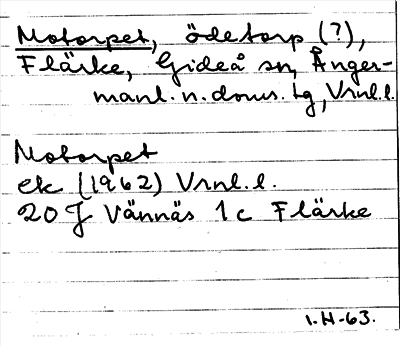 Motorpet, ödetorp (?),
Flärke, Gideå sn, Ånger-
manl. n. doms. tg, Vrnl.l.
Motorpet
ek (1962) Vrnl.l.
20 J Vännäs 1 c Flärke
I.H-63.